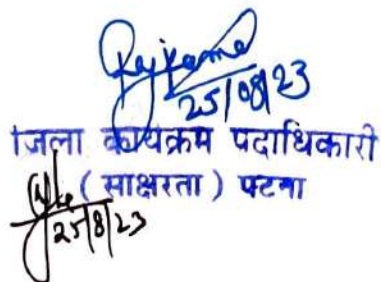 25/08/23
जिला कार्यक्रम पदाधिकारी
( साक्षरता ) पटना
25/8/23